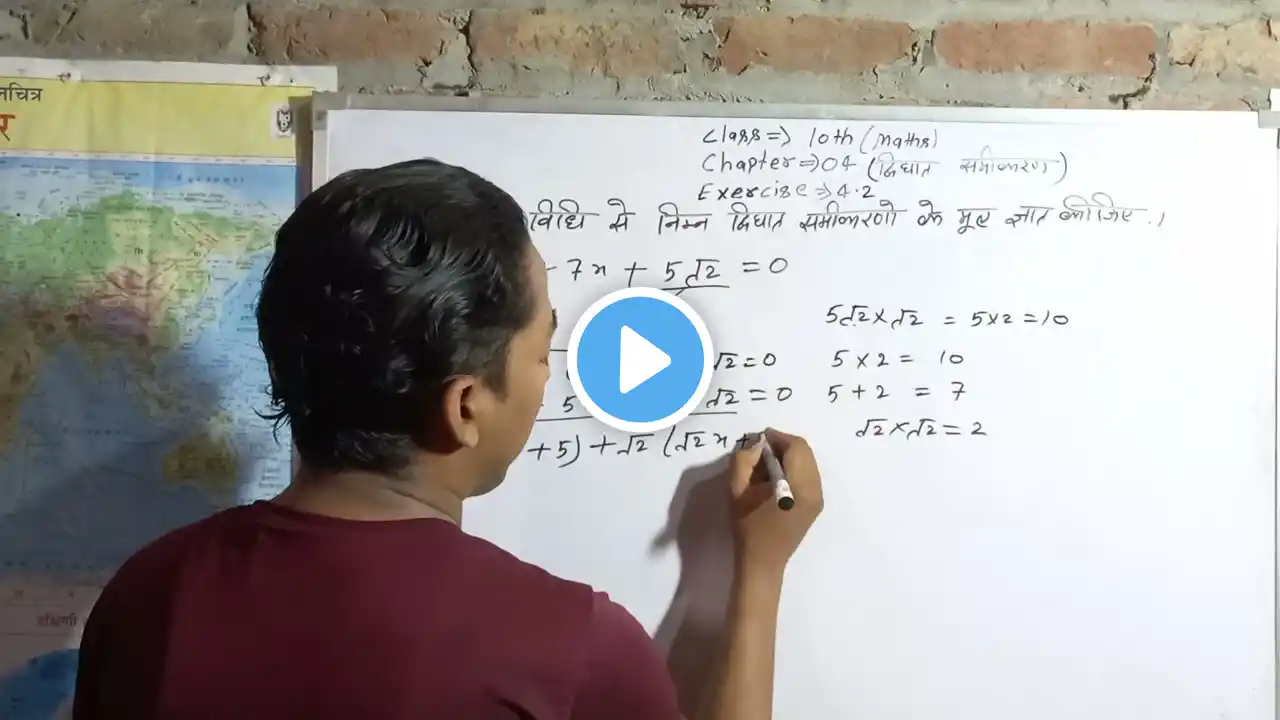 नचित्र
र
Class ⇒ 10th (Maths)
Chapter ⇒ 04 (द्विघात समीकरण)
Exercise ⇒ 4.2
विधि से निम्न द्विघात समीकरणो के मूल ज्ञात कीजिए.।
7x + 5√2 = 0
5√2×√2 = 5×2=10
√2=0
5 × 2 = 10
5
√2 = 0
5 + 2 = 7
+ 5) + √2 (√2x +
√2×√2 = 2
दक्षिणी